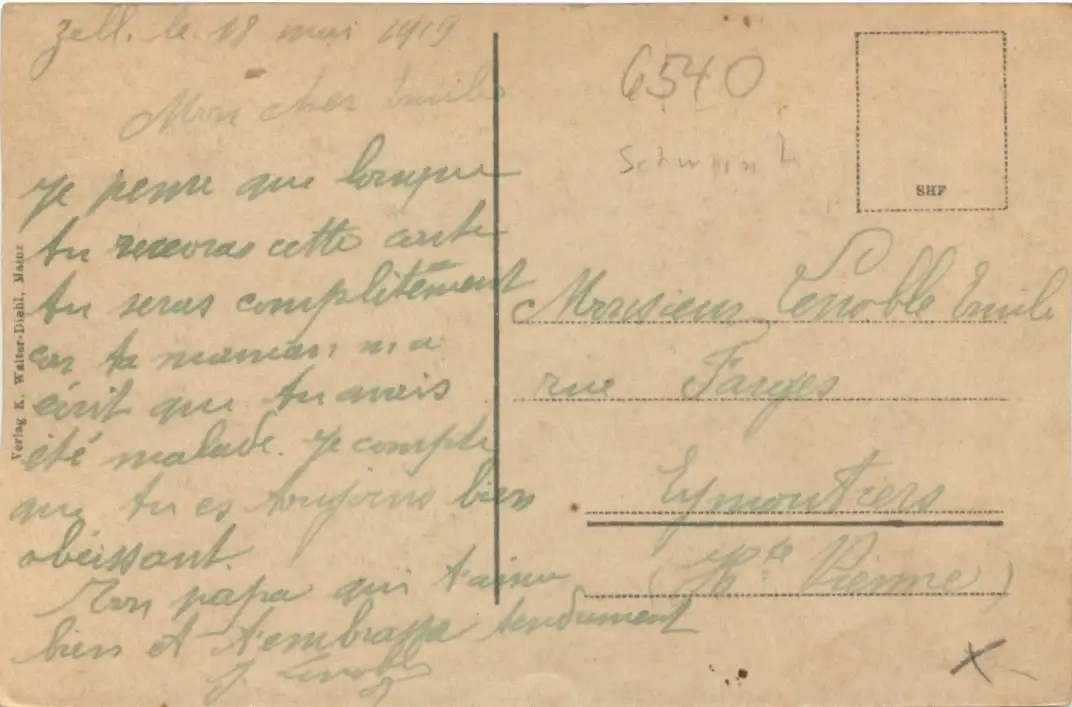 Zell. le 18 mai 1919
Mon cher Emile
Je pense que lorsque
tu recevras cette carte
tu seras complitèment
car ta maman m'a
écrit que tu avais
été malade. Je compte
que tu es toujours bien
obéissant.
Ton papa qui t'aime
bien et t'embrasse tendrement
J. Lenoble
Verlag K. Walter-Diehl, Mainz
6540
SHF
Monsieur Lenoble Emile
rue Farges
Eymoutiers
(Hte Vienne)